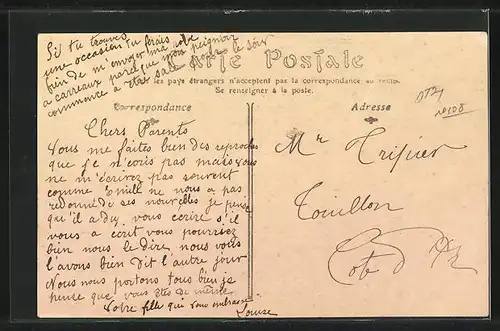 Si tu trouves
une occasion tu ferais
bien de m'envoyer ma robe
a carreaux parce que mon peignoir
commence a être sale pour le soir
Carte Postale
les pays étrangers n'acceptent pas la correspondance au recto.
Se renseigner à la poste.
Correspondance
Adresse
Chers Parents
Vous me faites bien des reproches
que je n'écris pas mais vous
ne m'écrivez pas souvent
comme Emile ne nous a pas
redonné de ses nouvelles je pense
qu'il a du vous ecrire s'il
vous a ecrit vous pourriez
bien nous le dire, nous vous
l'avons bien dit l'autre jour
Nous nous portons tous bien je
pense que vous êtes de même
Votre fille qui vous embrasse
Louise
Mr Trifier
Touillon
Cote d'Or